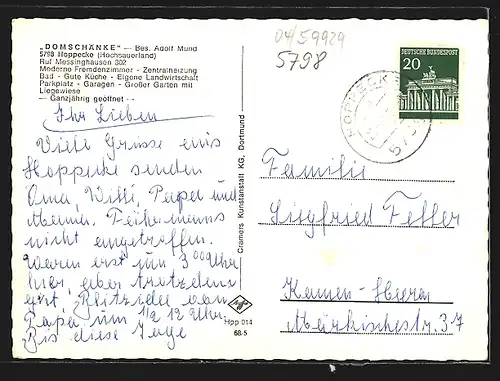 „DOMSCHÄNKE" — Bes. Adolf Mund
5798 Hoppecke (Hochsauerland)
Ruf Messinghausen 302
Moderne Fremdenzimmer - Zentralheizung
Bad - Gute Küche - Eigene Landwirtschaft
Parkplatz - Garagen - Großer Garten mit
Liegewiese
— Ganzjährig geöffnet —
04/59929
5798
DEUTSCHE BUNDESPOST
20
HOPPECKE
Ihr Lieben
Viele Grüsse aus
Hoppecke senden
Oma, Willi, Papa und
Mama.
nicht eingetroffen.
Waren erst um 3 00 Uhr
hier, aber trotzdem
gut.
Papa um 1/2 12 Uhr.
Bis diese Tage
Cramers Kunstanstalt KG, Dortmund
Hpp 014
68/5
Familie
Siegfried Feller
Kamen-Heeren
Märkischestr. 37